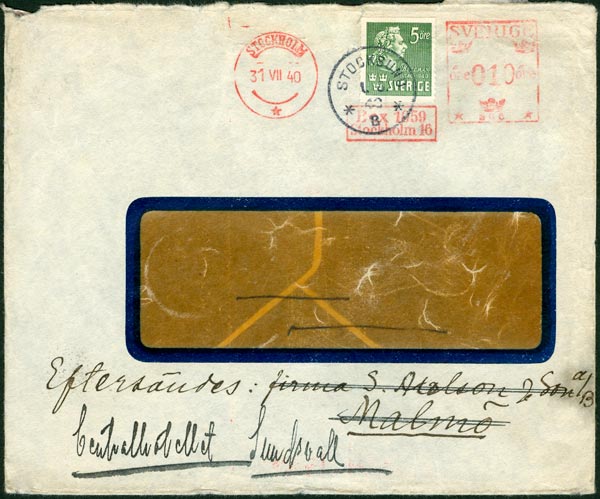 STOCKHOLM
31 VII 40
5 öre
SVERIGE
STOCKHOLM
40
B
SVERIGE
öre 010 öre
Box 1959
Stockholm 16
Eftersändes: firma S. Axelson & Son a/B
Malmö
Centralhotellet Sundsvall